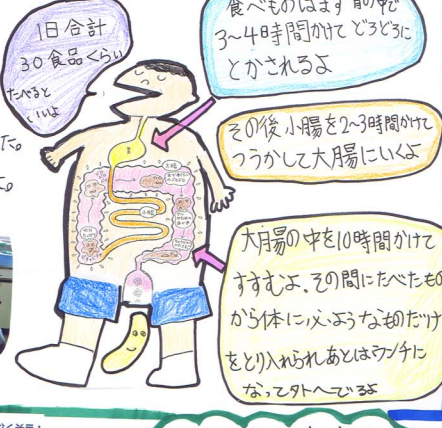 1日合計
30食品くらい
たべると
いいよ
食べものはまず胃の中で
3〜4時間かけてどろどろに
とかされるよ
その後小腸を2〜3時間かけて
つうかして大腸にいくよ
大腸
小腸
大腸の中を10時間かけて
すすむよ。その間にたべたもの
から体に必ようなものだけ
をとり入れられあとはウンチに
なって外へでるよ
た。